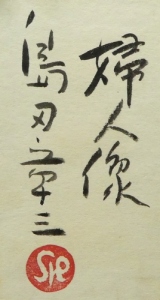 婦人像
島田章三